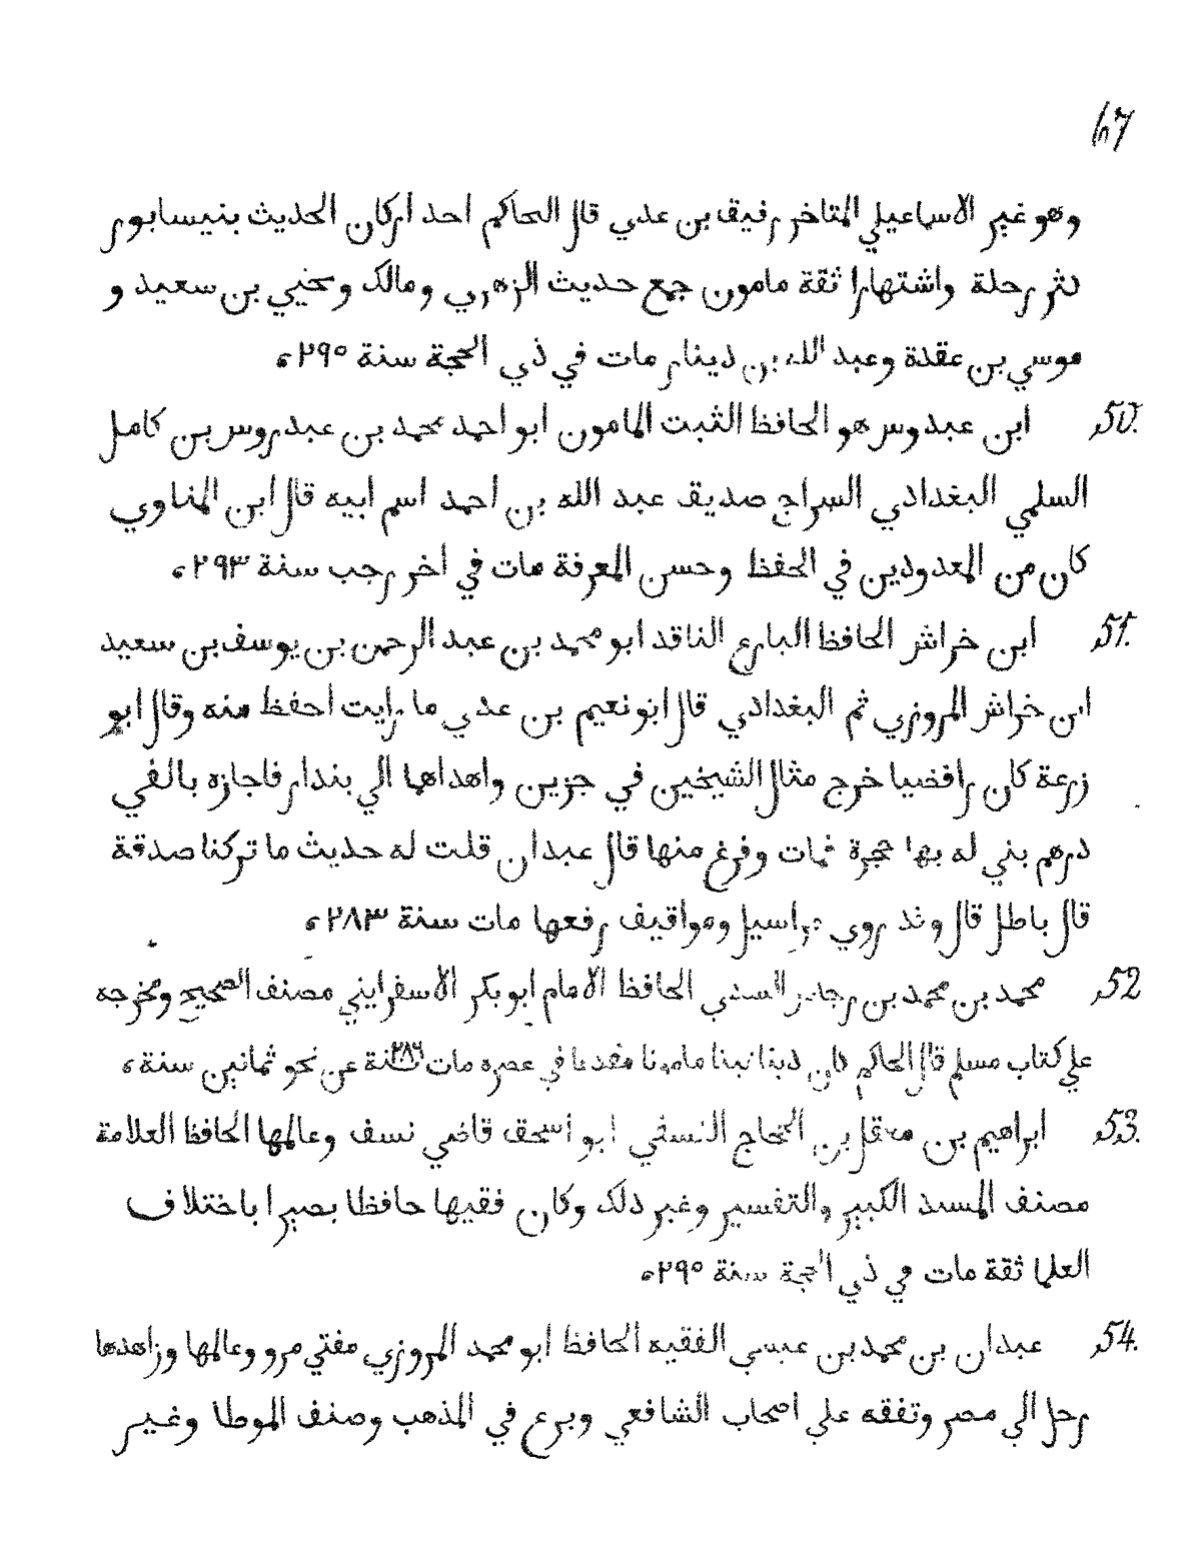 67
وهو غير الاسماعيلي المتاخر رفيق بن عدي قال الحاكم احد اركان الحديث بنيسابور
كثر رحلة واشتهارا ثقة مامون جمع حديث الزهري ومالك ويحيي بن سعيد و
موسي بن عقدة وعبد الله بن دينار مات في ذي الحجة سنة ٢٩٥ء
50. ابن عبدوس هو الحافظ الثبت المامون ابو احمد محمد بن عبدروس بن كامل
السلمي البغدادي السراج صديق عبد الله بن احمد اسم ابيه قال ابن المناوي
كان من المعدودين في الحفظ وحسن المعرفة مات في اخر رجب سنة ٢٩٣ء
51. ابن خراش الحافظ البارع الناقد ابو محمد بن عبد الرحمن بن يوسف بن سعيد
ابن خراش المروزي ثم البغدادي قال ابو نعيم بن عدي ما رايت احفظ منه وقال ابو
زرعة كان رافضيا خرج مثال الشيخين في جزين واهداها الي بندار فاجازه بالفي
درهم بني له بها حجرة ثمات وفرغ منها قال عبدان قلت له حديث ما تركنا صدقة
قال باطل قال وقد روي مراسيل ومواقيف رفعها مات سنة ٢٨٣ء
52. محمد بن محمد بن رجا السندي الحافظ الامام ابو بكر الاسفرايني مصنف الصحيح ومخرجه
علي كتاب مسلم قال الحاكم كان دينا ثبتا مامونا مقدما في عصره مات سنة ٢٨٦ عن نحو ثمانين سنة ء
53. ابراهيم بن معقل بن الحجاج النسفي ابو اسحق قاضي نسف وعالمها الحافظ العلامة
مصنف المسند الكبير والتفسير وغير ذلك وكان فقيها حافظا بصيرا باختلاف
العلما ثقة مات في ذي الحجة سنة ٢٩٥ء
54. عبدان بن محمد بن عيسي الفقيه الحافظ ابو محمد المروزي مفتي مرو وعالمها وزاهدها
رحل الي مصر وتفقه علي اصحاب الشافعي وبرع في المذهب وصنف الموطا وغير